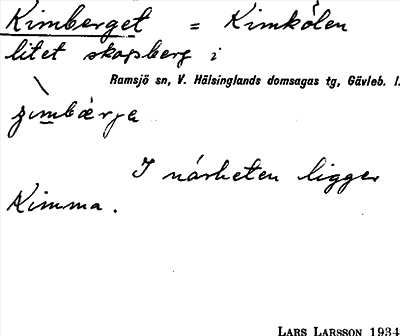 Kimberget = Kimkölen
litet skogsberg i
Ramsjö sn, V. Hälsinglands domsagas tg, Gävleb. l.
I närheten ligger
Kimma.
LARS LARSSON 1934